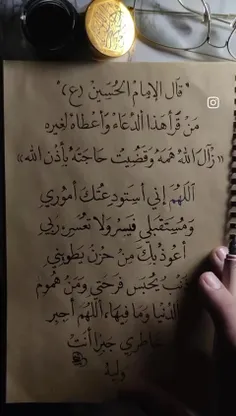 "قَالَ الإِمَامُ الحُسَيْنُ (ع)"
مَنْ قَرَأَ هَذَا الدُعَاءَ وَأَعْطَاهُ لِغَيرِه
«زَالَ اللهُ هَمَهُ وَقَضَيْتُ حَاجَتَهُ بِأذنِ الله»
اَللّهُمَ إِنِي أَستَودِعُتكَ أُمُورِي
وَمُسْتَقبَلِي فَيَسِرْ وَلَا تُعَسِرْ رَبِي
أَعُوذُ بِكَ مِنْ حُزنٍ يَطوِينِي
ذَنبٌ يُحْبَسِ فَرحَتِي وَمِنْ هُمُومِ
الدُنْيَا وَمَا فِيهَا، اَللّهُمَ أَجبِر
خَاطِرِي جَبرًا أَنتَ
وَلِيهُ